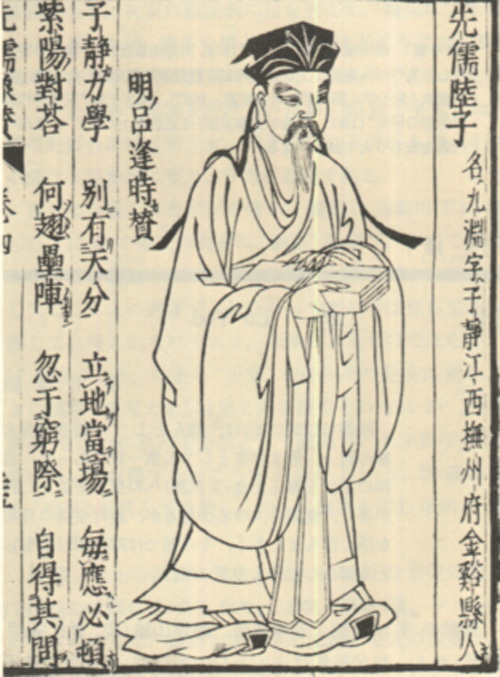 先儒陸子 名九淵字子靜江西撫州府金谿縣人
明呂逢時贊
子靜力學 別有天分 立地當場 毎應必頓
紫陽對荅 何翅壘陣 忽于窮際 自得其問